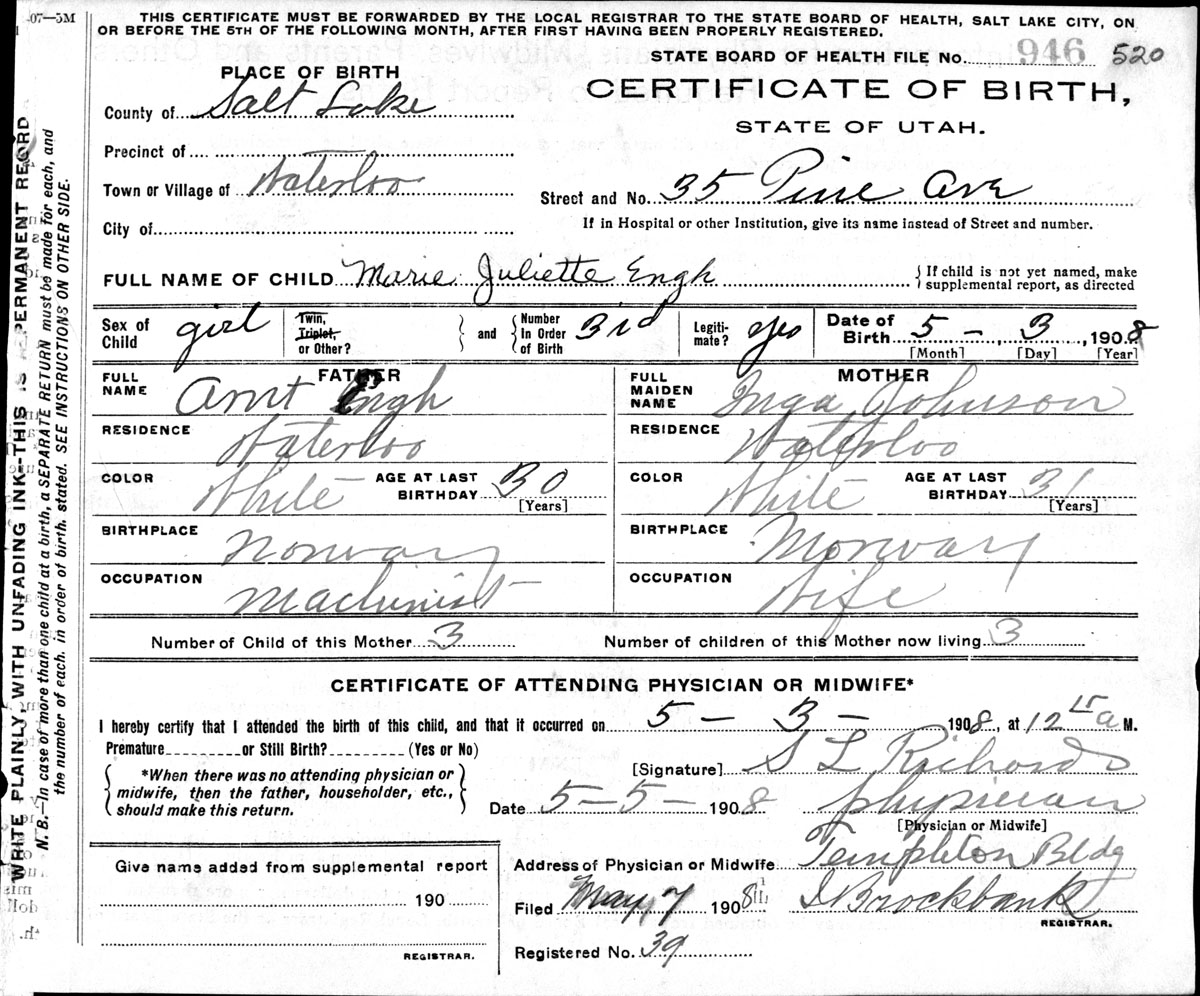 07—5M
THIS CERTIFICATE MUST BE FORWARDED BY THE LOCAL REGISTRAR TO THE STATE BOARD OF HEALTH, SALT LAKE CITY, ON
OR BEFORE THE 5TH OF THE FOLLOWING MONTH, AFTER FIRST HAVING BEEN PROPERLY REGISTERED.
STATE BOARD OF HEALTH FILE No. 946 520
PLACE OF BIRTH
CERTIFICATE OF BIRTH,
County of Salt Lake
STATE OF UTAH.
Precinct of
Town or Village of Waterloo
Street and No. 35 Pine Ave
City of
If in Hospital or other Institution, give its name instead of Street and number.
FULL NAME OF CHILD Marie Juliette Engh
{ If child is not yet named, make
supplemental report, as directed
Sex of Child girl
Twin, Triplet, or Other? } and { Number In Order of Birth 3rd
Legiti-mate? yes
Date of Birth 5 - , 3 , 1908
[Month] [Day] [Year]
FATHER
FULL NAME Arnt Engh
RESIDENCE Waterloo
COLOR White AGE AT LAST BIRTHDAY 30
[Years]
BIRTHPLACE Norway
OCCUPATION Machinist
MOTHER
FULL MAIDEN NAME Inga Johnson
RESIDENCE Waterloo
COLOR White AGE AT LAST BIRTHDAY 31
[Years]
BIRTHPLACE Norway
OCCUPATION Wife
Number of Child of this Mother 3 Number of children of this Mother now living 3
CERTIFICATE OF ATTENDING PHYSICIAN OR MIDWIFE*
I hereby certify that I attended the birth of this child, and that it occurred on 5 - 3 - 1908, at 12 15 a M.
Premature or Still Birth? (Yes or No)
*When there was no attending physician or
midwife, then the father, householder, etc.,
should make this return.
[Signature] S L Richards
Date 5-5- 1908 physician
[Physician or Midwife]
Give name added from supplemental report
190
REGISTRAR.
Address of Physician or Midwife Templeton Bldg
Filed May 7 1908 Brockbank
REGISTRAR.
Registered No. 39
WRITE PLAINLY, WITH UNFADING INK--THIS IS A PERMANENT RECORD
N. B.—In case of more than one child at a birth, a SEPARATE RETURN must be made for each, and
the number of each, in order of birth, stated. SEE INSTRUCTIONS ON OTHER SIDE.